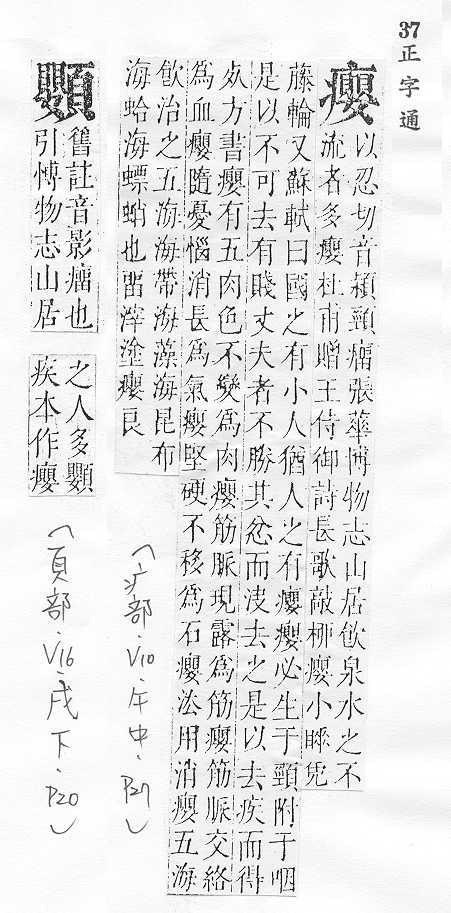 37 正字通
癭
以忍切音潁頸瘤張華博物志山居飲泉水之不
流者多癭杜甫贈王侍御詩長歌敲柳癭小睡凭
藤輪又蘇軾曰國之有小人猶人之有癭癭必生于頸附于咽
是以不可去有賤丈夫者不勝其忿而決去之是以去疾而得
死方書癭有五肉色不變為肉癭筋脈現露為筋癭筋脈交絡
為血癭隨憂惱消長為氣癭堅硬不移為石癭法用消癭五海
飲治之五海海帶海藻海昆布
海蛤海螵蛸也留滓塗癭良
(疒部.V10.午中.P27)
舊註音影瘤也
引博物志山居
之人多
疾本作癭
(頁部.V16.戌下.P20)